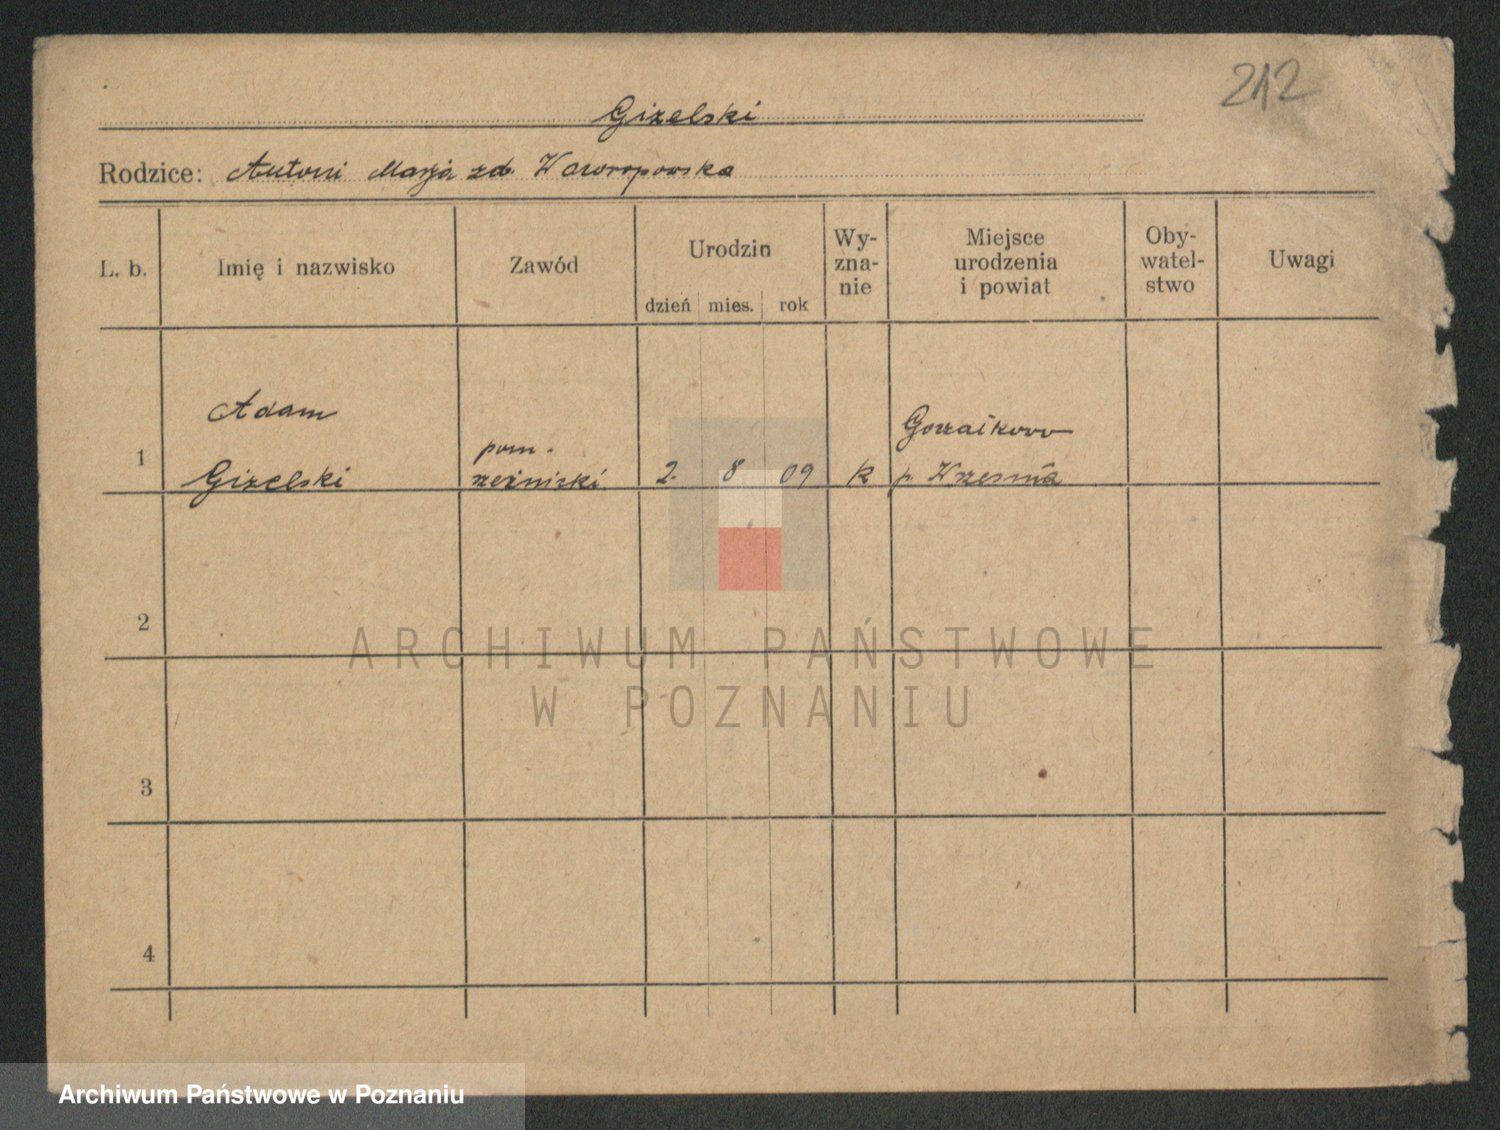 212
Gizelski
Rodzice: Antoni Marja zd. Waworopowska
L. b. Imię i nazwisko Zawód Urodzin dzień mies. rok Wy-zna-nie Miejsce urodzenia i powiat Oby-watel-stwo Uwagi
Adam
Gizelski
pom.
rzeźnicki
1 2. 8 09 k
p. Września
2
3
4
ARCHIWUM PAŃSTWOWE
W POZNANIU
Archiwum Państwowe w Poznaniu